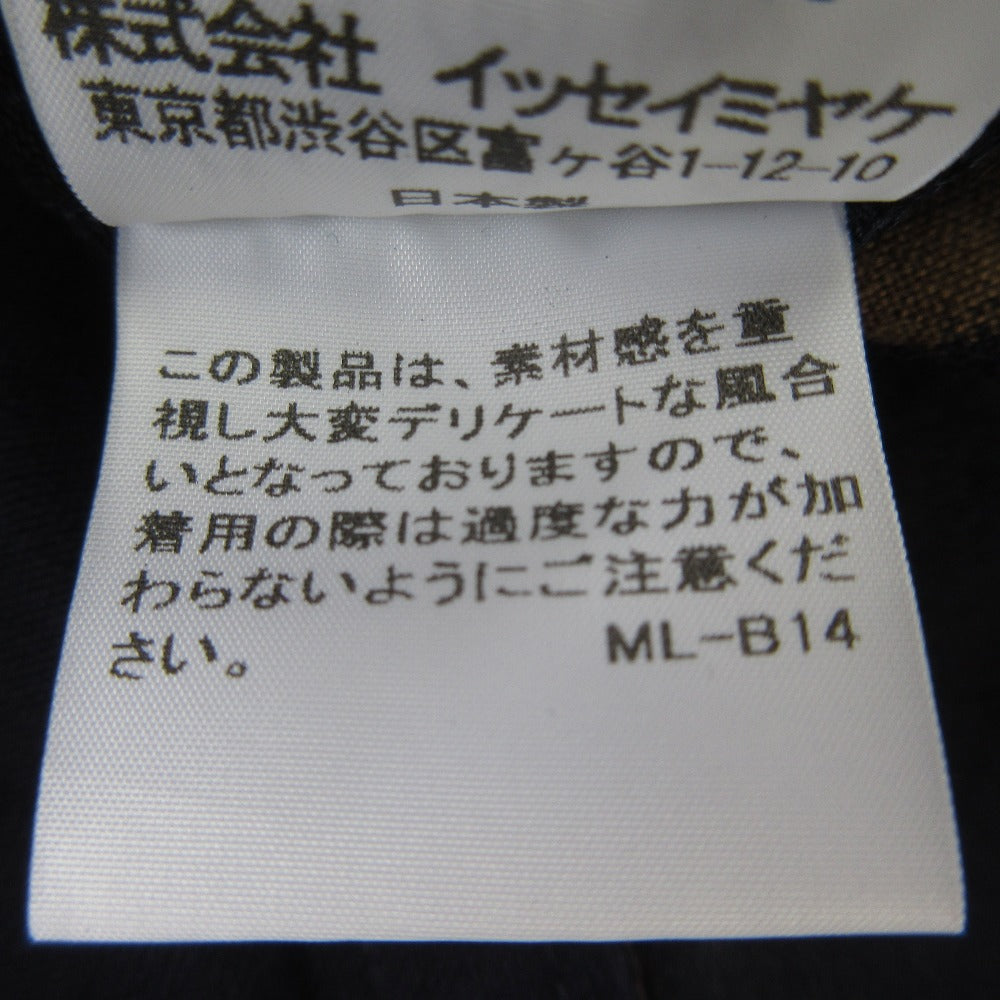 株式会社 イッセイミヤケ
東京都渋谷区富ヶ谷1-12-10
日本製
この製品は、素材感を重
視し大変デリケートな風合
いとなっておりますので、
着用の際は過度な力が加
わらないようにご注意くだ
さい。 ML-B14